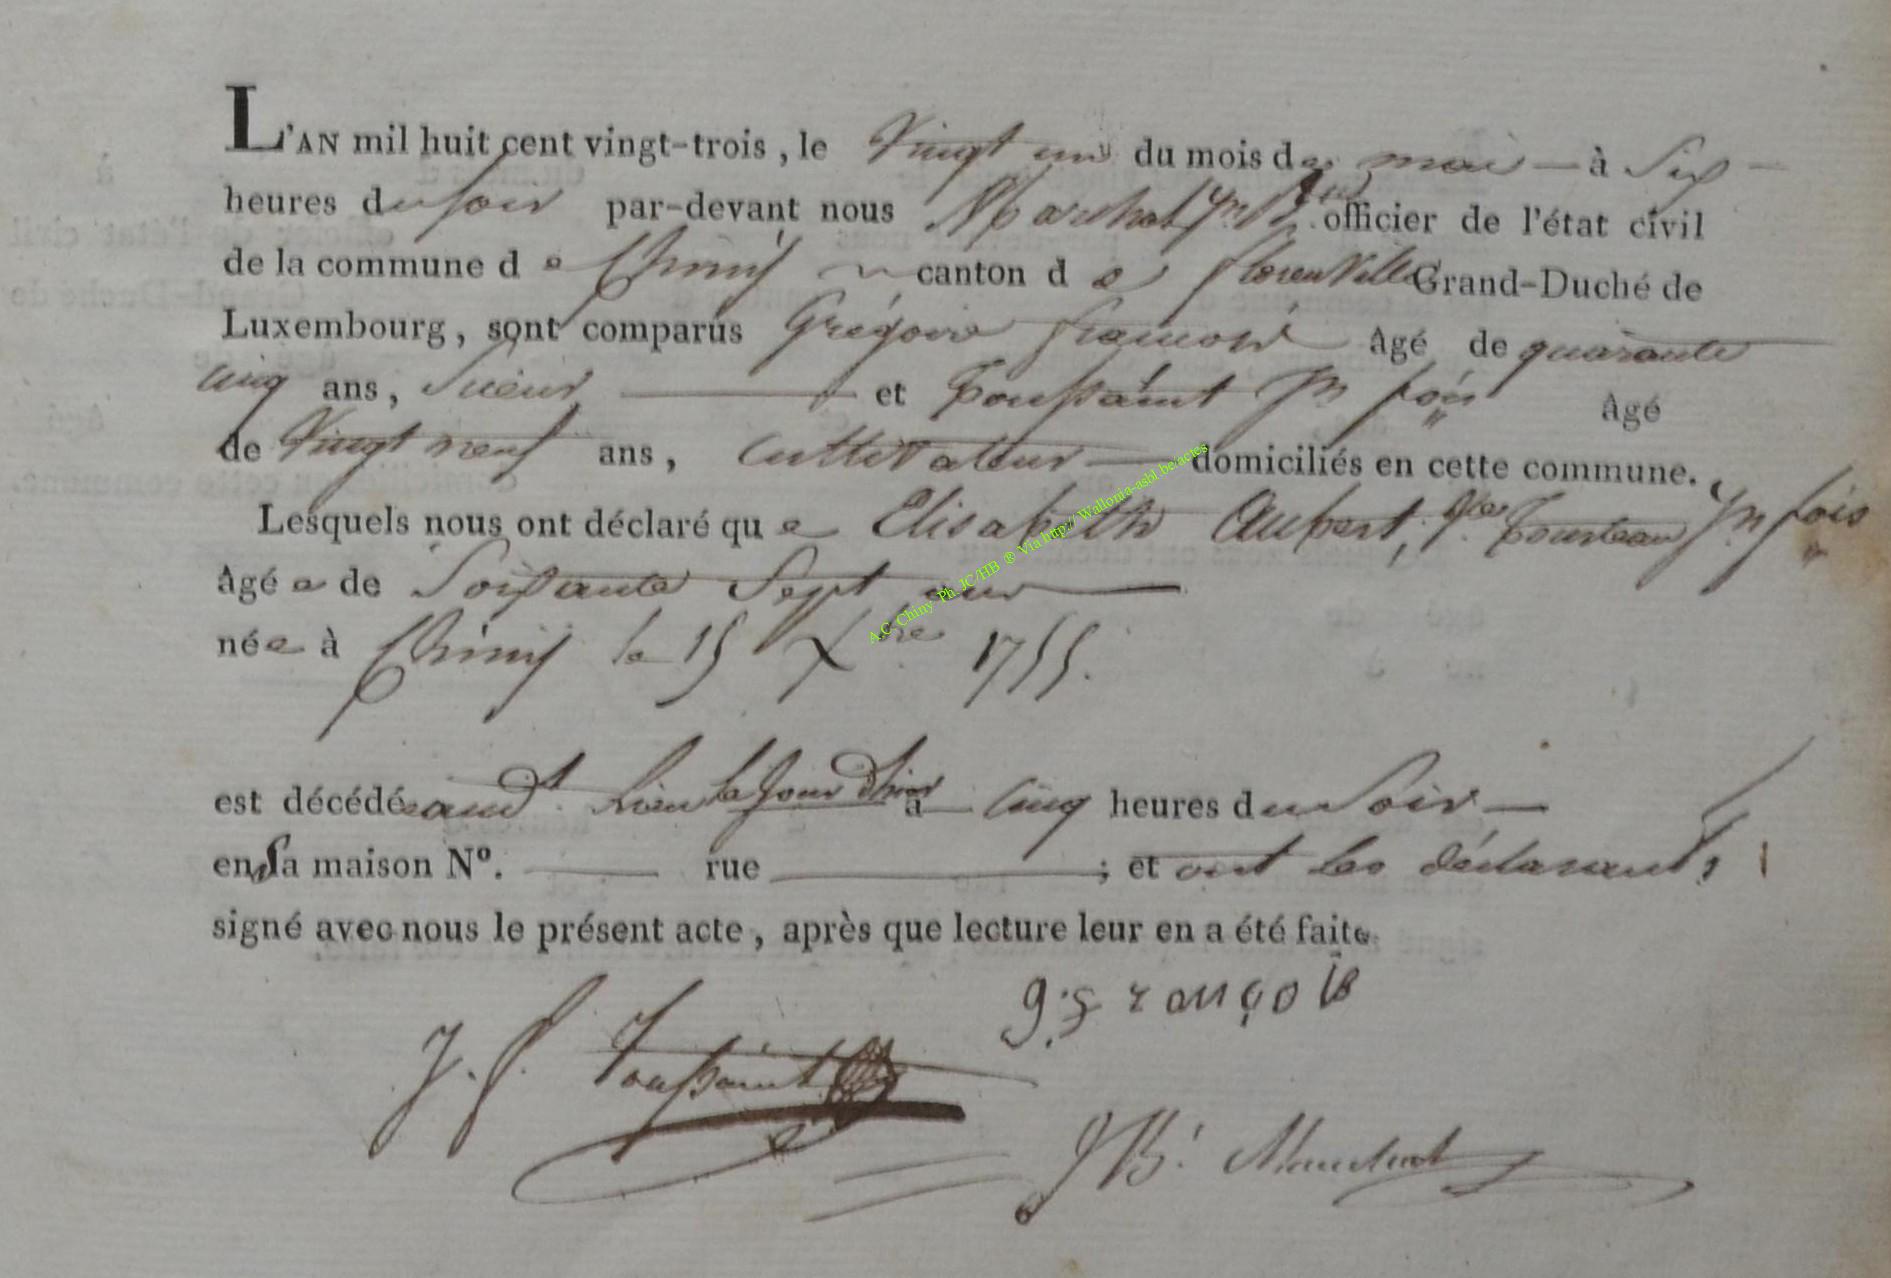 L'AN mil huit cent vingt-trois, le Vingt un du mois de mai — à Six —
heures du soir par-devant nous Marchal Jn Bte officier de l'état civil
de la commune d e Chiny canton d e florenville Grand-Duché de
Luxembourg, sont comparus Grégoire françois âgé de quarante
cinq ans, Scieur et Toussaint Jn fois âgé
de Vingt neuf ans, cultivateur domiciliés en cette commune.
Lesquels nous ont déclaré qu e Elisabeth Aubert, Jn fois
âgé e de Soixante Sept ans
née à Chiny le 15 Xbre 1755.
est décédée audt lieu le jour d'hier à cinq heures du Soir —
en Sa maison N°. rue ; et ont les déclarants
signé avec nous le présent acte, après que lecture leur en a été faite.
g. françois
J. f. Toussaint
JB: Marchal
A.C. Chiny Ph. JC/HB ® Via http:// Wallonia-asbl.be/actes